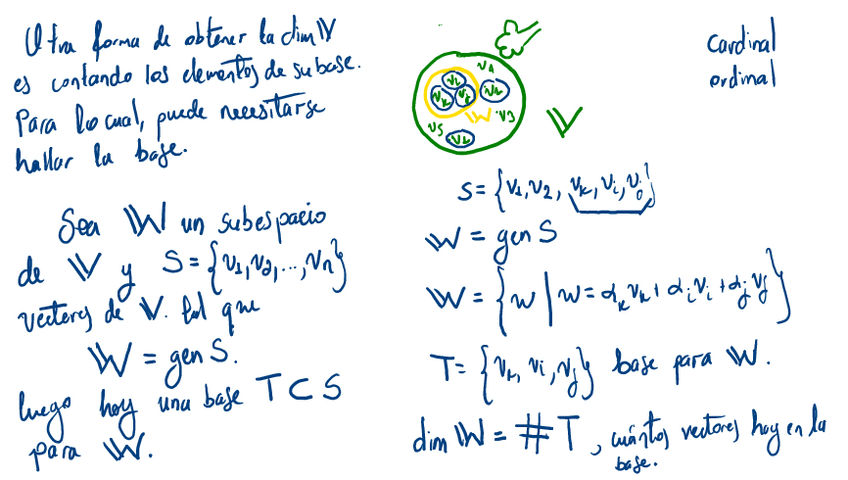 Otra forma de obtener la dim 𝕍
es contando los elementos de su base.
Para lo cual, puede necesitarse
hallar la base.
Sea 𝕎 un subespacio
de 𝕍 y S = {v₁, v₂, ..., vₙ}
vectores de 𝕍. tal que
𝕎 = gen S.
luego hay una base T ⊂ S
para 𝕎.
v₁
vᵢ
vₖ vⱼ
v₂
𝕎
v₃
v₅
𝕍
S = {v₁, v₂, vₖ, vᵢ, vⱼ}
𝕎 = gen S
𝕎 = {w | w = αₖvₖ + αᵢvᵢ + αⱼvⱼ}
T = {vₖ, vᵢ, vⱼ} base para 𝕎.
dim 𝕎 = # T, cuántos vectores hay en la
base.
Cardinal
ordinal